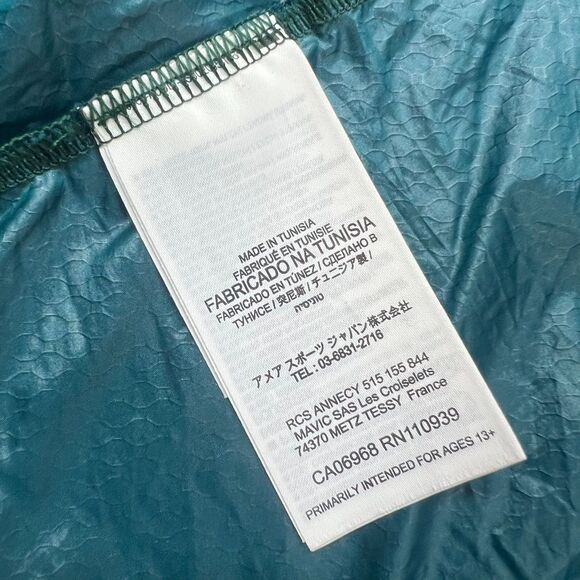 MADE IN TUNISIA
FABRIQUÉ EN TUNISIE
FABRICADO NA TUNÍSIA
FABRICADO EN TÚNEZ / СДЕЛАНО В
ТУНИСЕ / 突尼斯 / チュニジア製 /
טוניסיה
アメア スポーツ ジャパン株式会社
TEL : 03-6831-2716
RCS ANNECY 515 155 844
MAVIC SAS Les Croiselets
74370 METZ TESSY France
CA06968 RN110939
PRIMARILY INTENDED FOR AGES 13+